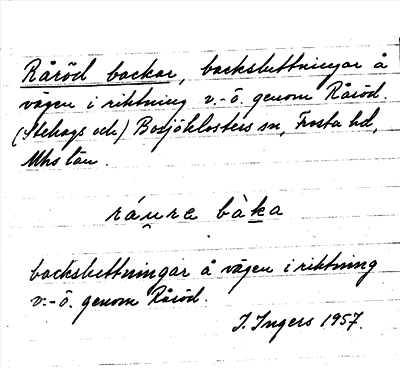 Råröd backar, backsluttningar å
vägen i riktning v.-ö. genom Råröd.
(Stehags och) Bosjöklosters sn, Frosta hd,
Mhs län.
ráura bàka
backsluttningar å vägen i riktning
v.-ö. genom Råröd.
I. Ingers 1957.